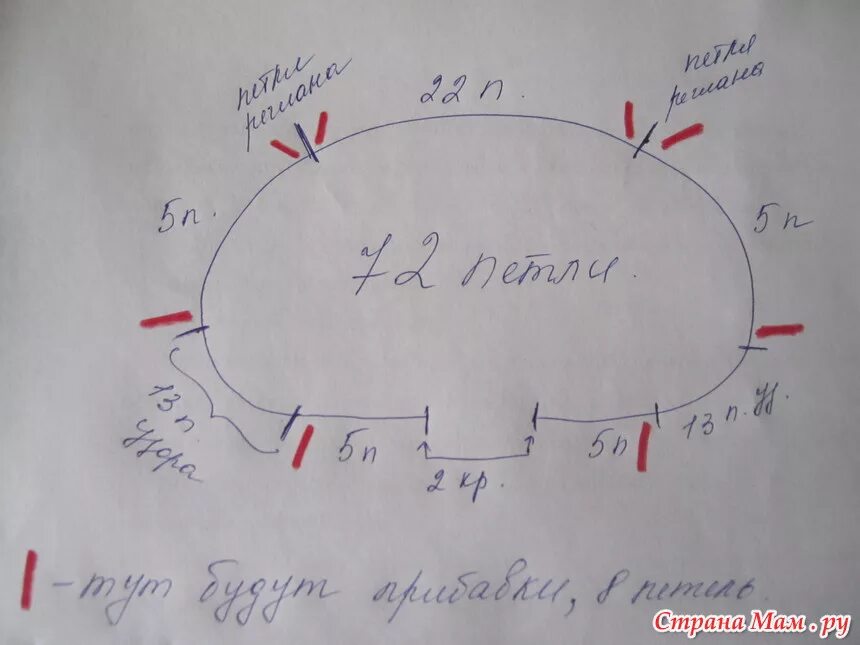 петля
реглана
22 п.
петля
реглана
5п.
5п
72 петли.
13 п.
узора
5п
2 кр.
5п
13 п. уз.
- тут будут прибавки, 8 петель.
Страна Мам.ру